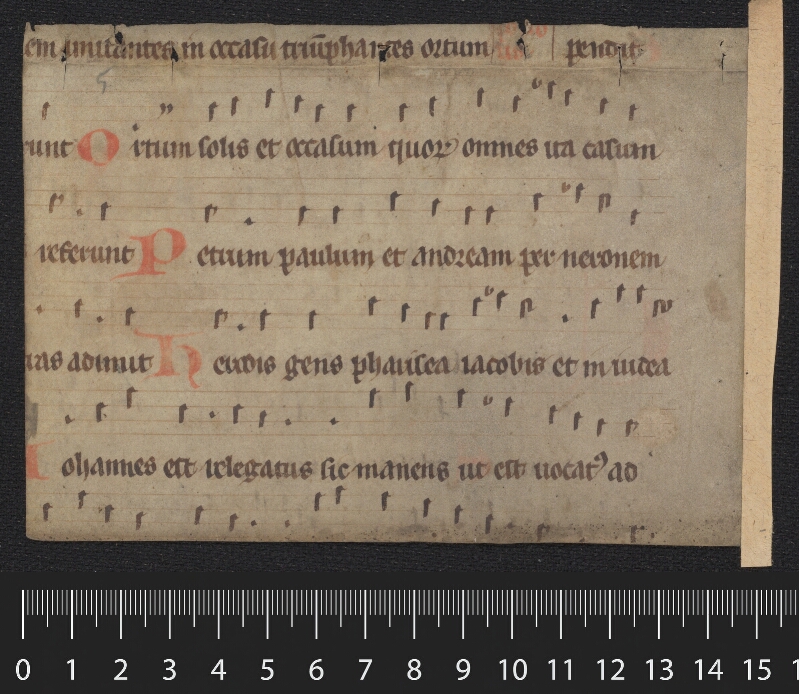 em imitantes in occasu triũphantes ortum pendit
5
runt Ortum solis et occasum quoꝝ omnes ita casum
referunt Petrum paulum et andream per neronem
ras adimit Herodis gens pharisea iacobis et in iudea
Iohannes est relegatus sic manens ut est uocatꝰ ad
0 1 2 3 4 5 6 7 8 9 10 11 12 13 14 15 1